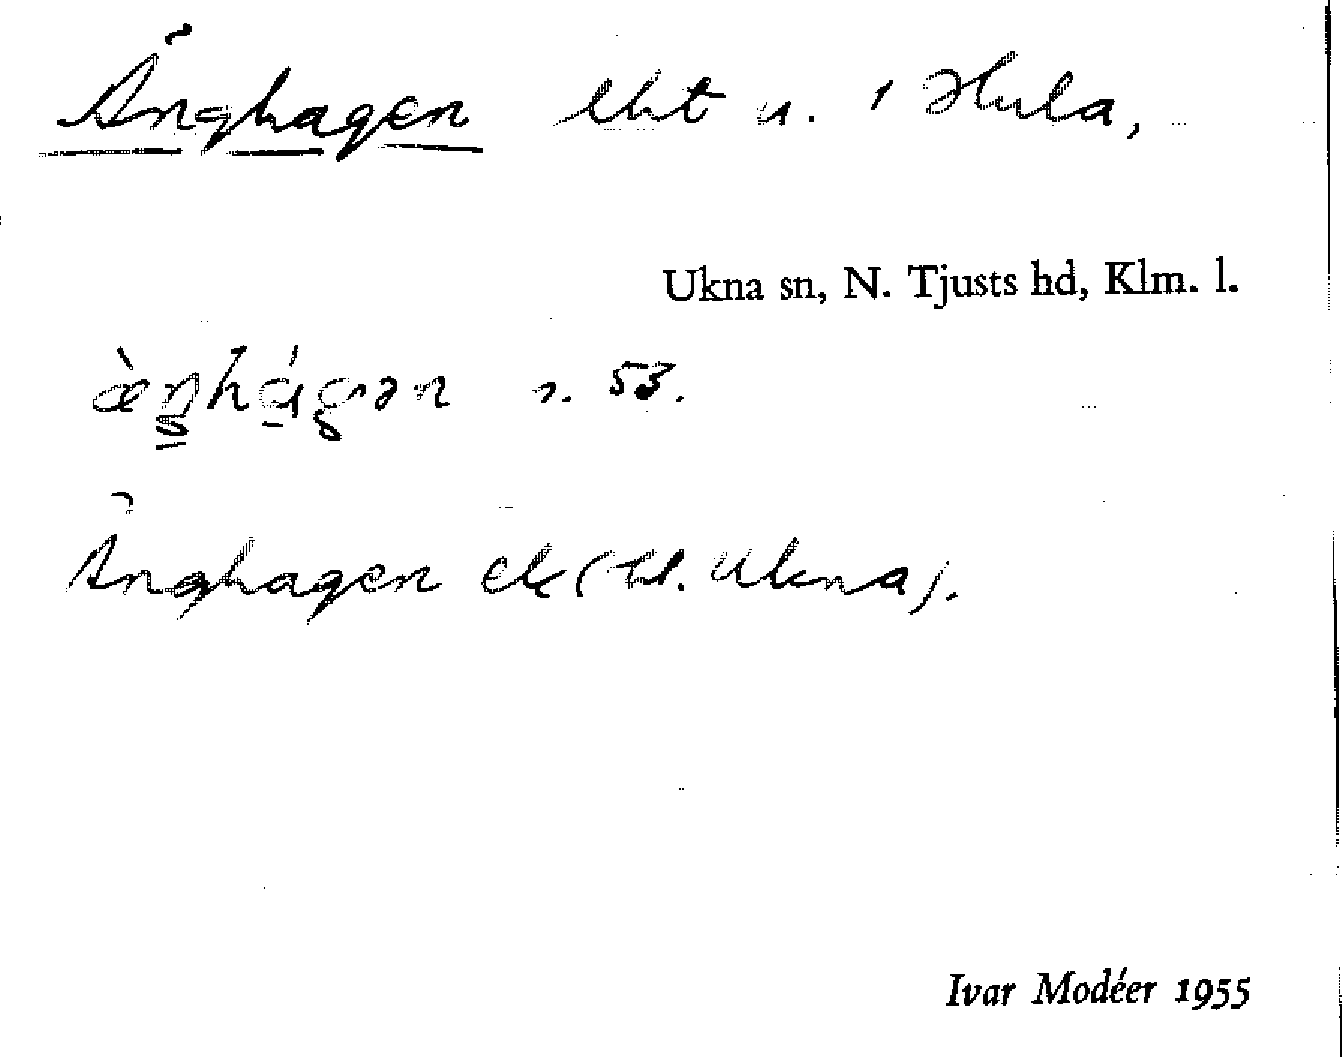 Änghagen lht u. ¹ Hula,
Ukna sn, N. Tjusts hd, Klm. l.
æ̀ŋhágən s. 53.
Änghagen ek (bl. Ukna).
Ivar Modéer 1955